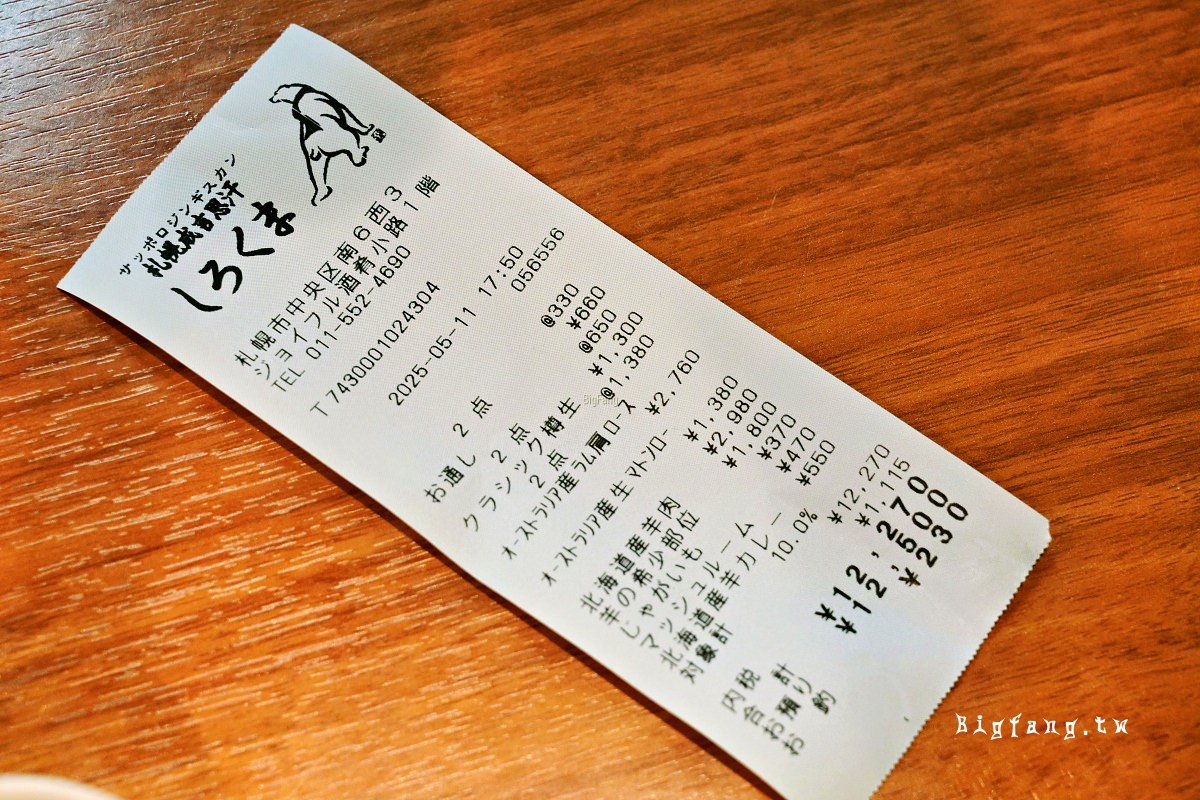 サッポロジンギスカン
札幌成吉思汗
しろくま
札幌市中央区南6西3
ジョイフル酒肴小路1階
TEL 011-552-4690
T7430001024304
2025-05-11 17:50
056556
お通し
2点 @330
¥660
クラシック樽生
2点 @650
¥1,300
オーストラリア産ラム肩ロース
2点 @1,380
¥2,760
オーストラリア産生マトンロー ¥1,380
北海道産羊肉 ¥2,980
羊の希少部位 ¥1,800
じゃがいも ¥370
マッシュルーム ¥470
北海道産羊カレー ¥550
対象計 10.0% ¥12,270
内税 ¥1,115
合計 ¥12,270
お預り ¥12,500
お釣 ¥230
BigFang
Bigfang.tw